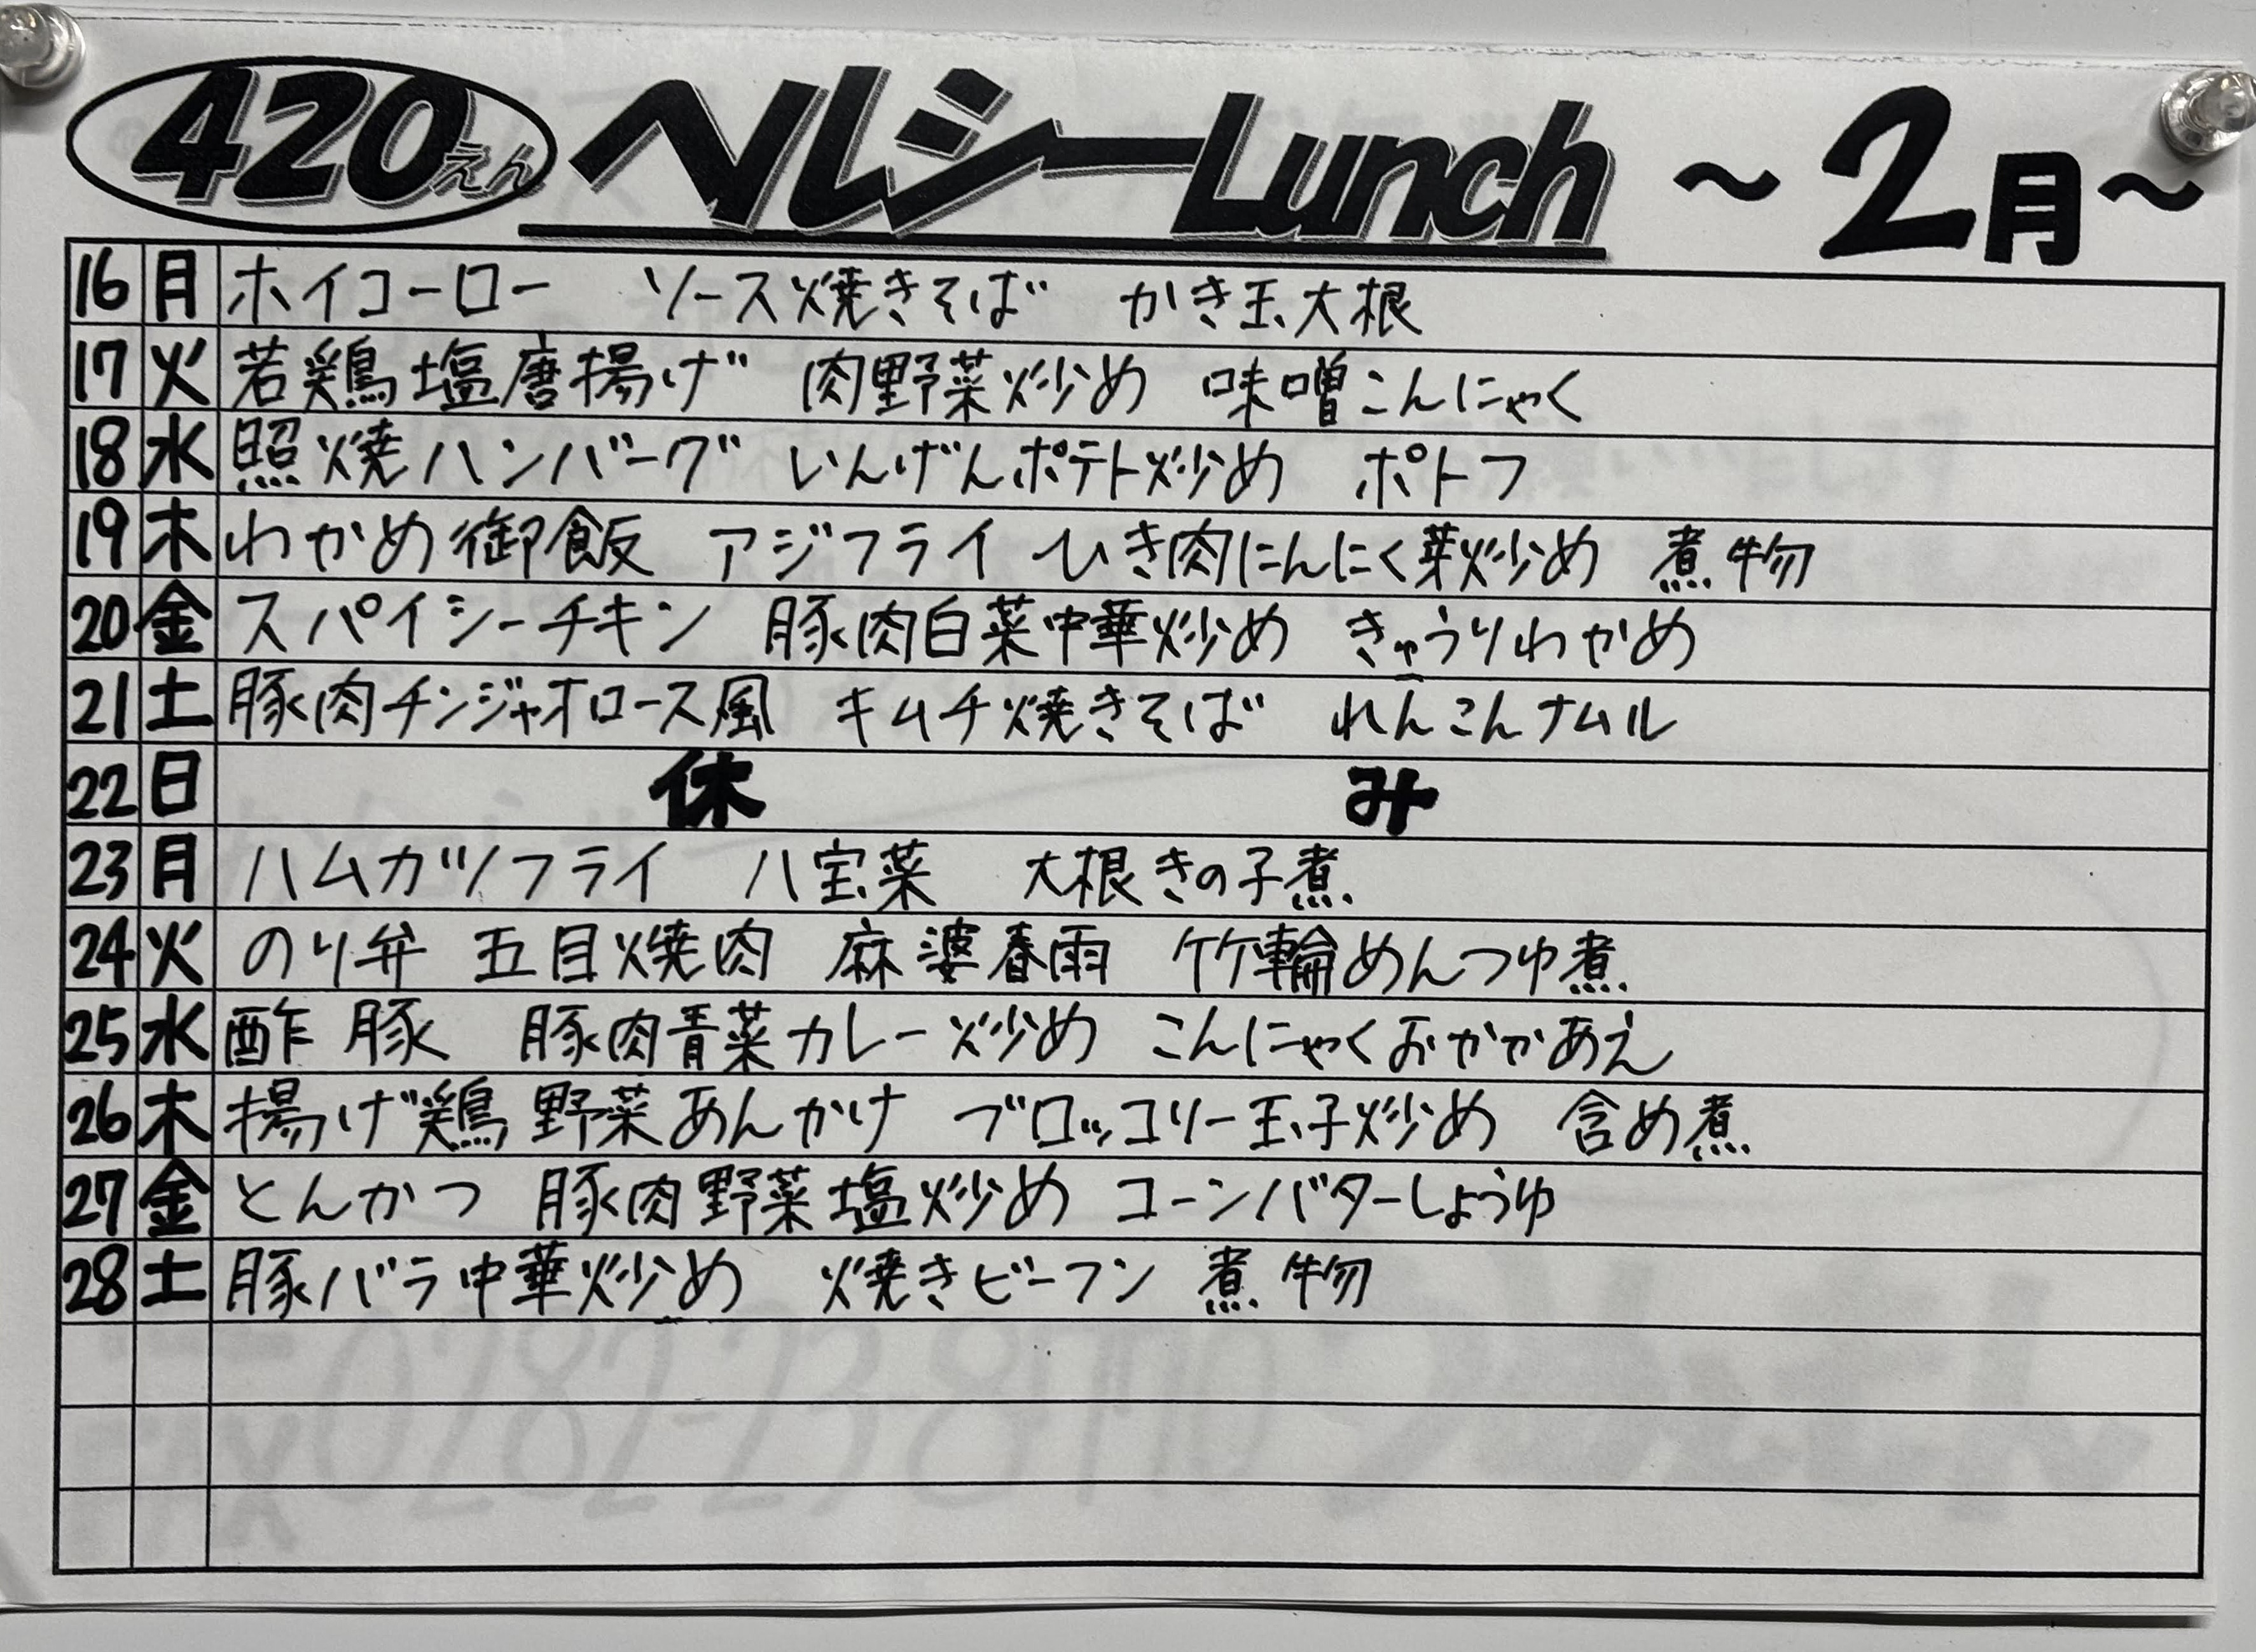 420えん ヘルシーLunch ～2月～
16 月 ホイコーロー ソース焼きそば かき玉大根
17 火 若鶏塩唐揚げ 肉野菜炒め 味噌こんにゃく
18 水 照焼ハンバーグ いんげんポテト炒め ポトフ
19 木 わかめ御飯 アジフライ ひき肉にんにく芽炒め 煮物
20 金 スパイシーチキン 豚肉白菜中華炒め きゅうりわかめ
21 土 豚肉チンジャオロース風 キムチ焼きそば れんこんナムル
22 日 休み
23 月 ハムカツフライ 八宝菜 大根きの子煮
24 火 のり弁 五目焼肉 麻婆春雨 竹輪めんつゆ煮
25 水 酢豚 豚肉青菜カレー炒め こんにゃくおかかあえ
26 木 揚げ鶏野菜あんかけ ブロッコリー玉子炒め 含め煮
27 金 とんかつ 豚肉野菜塩炒め コーンバターしょうゆ
28 土 豚バラ中華炒め 焼きビーフン 煮物